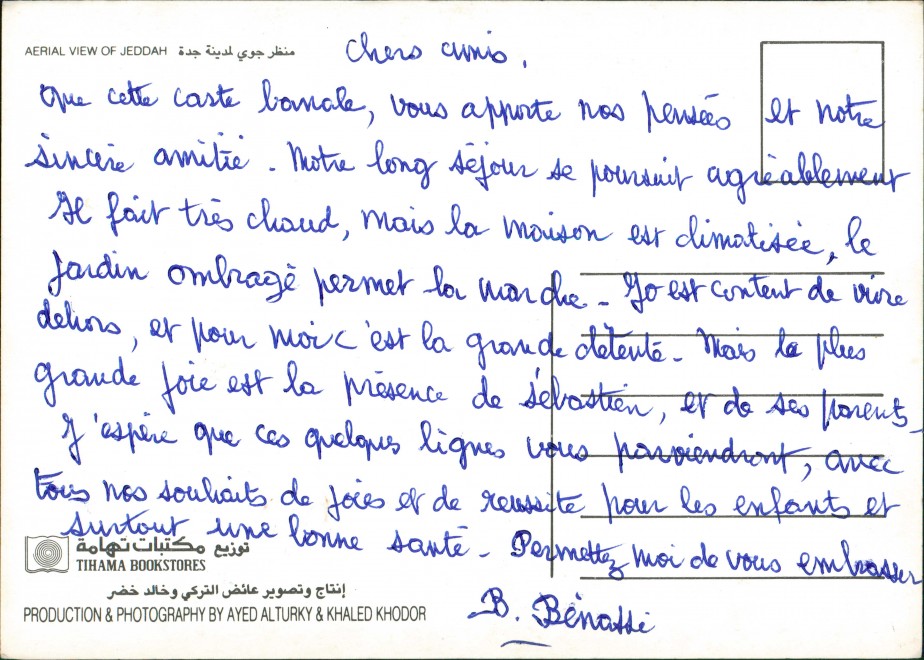 AERIAL VIEW OF JEDDAH منظر جوي لمدينة جدة
Chers amis,
Que cette carte banale, vous apporte nos pensées et notre
sincère amitié. Notre long séjour se poursuit agréablement
Il fait très chaud, mais la maison est climatisée, le
jardin ombragé permet la marche - Jo est content de vivre
dehors, et pour moi c'est la grande détente - Mais la plus
grande joie est la présence de Sébastien, et de ses parents -
J'espère que ces quelques lignes vous parviendront, avec
tous nos souhaits de joies et de reussite pour les enfants et
surtout une bonne santé - Permettez moi de vous embrasser
B. Bénassi
توزيع مكتبات تهامة
TIHAMA BOOKSTORES
إنتاج وتصوير عائض التركي وخالد خضر
PRODUCTION & PHOTOGRAPHY BY AYED ALTURKY & KHALED KHODOR